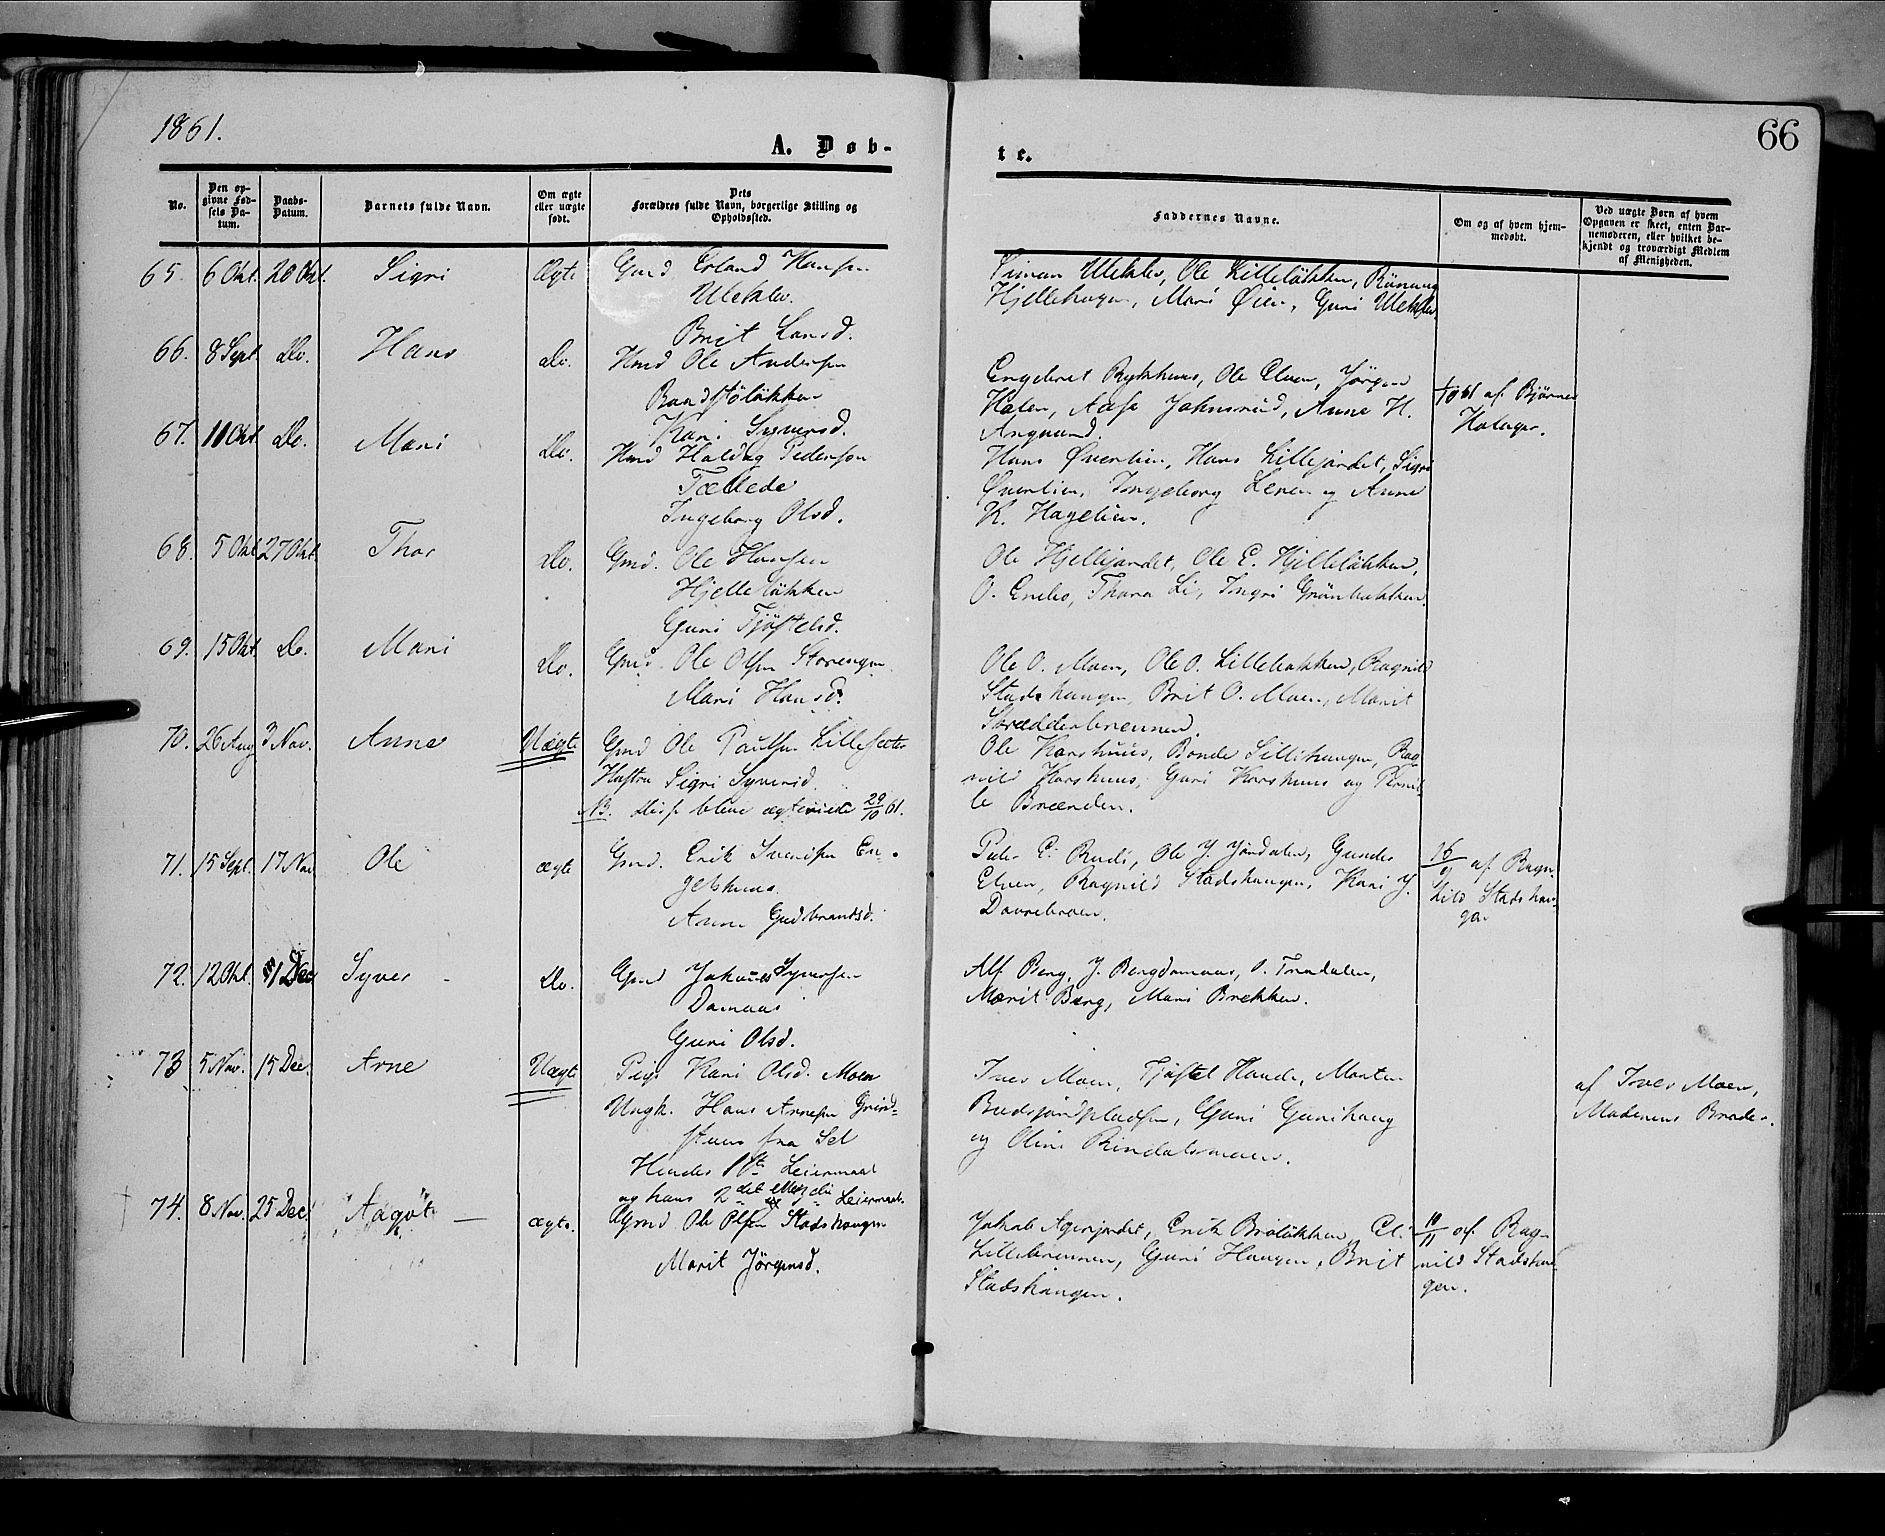 1861.
66
A. Døb-
te.
No.
Den op-
givne Fød-
sels Da-
tum.
Daabs-
Datum.
Barnets fulde Navn.
Om ægte
eller uægte
født.
Dets
Forældres fulde Navn, borgerlige Stilling og
Opholdssted.
Faddernes Navne.
Om og af hvem hjem-
medøbt.
Ved uægte Børn af hvem
Opgaven er skeet, enten Bar-
nemoderen, eller hvilket be-
kjendt og troværdigt Medlem
af Menigheden.
65. 6 Okt. 20 Okt. Sigri Ægte Gmd Erland Hansen
Uleklev.
Brit Larsd.
Simen Uleklev, Ole Lilleløkken, Rønnaug
Hjellehagen, Mari Øien, Guri Uleklev.
66. 8 Sept. Do. Hans Do. Hmd Ole Andersen
Randstøløkken
Kari Syversd.
Engebret Rykhuus, Ole Elven, Jørgen
Halen, Aase Jahnsrud, Anne H.
Angaard.
af Bjørner
67. 11 Okt. Do. Mari Do. Hmd Haldog Pedersen
Tællede
Ingeborg Olsd.
Hans Øverlien, Hans Lillejordet, Sigri
Øverlien, Ingeborg og Anne
K. Hagelien.
68. 5 Okt. 27 Okt. Thor Do. Gmd. Ole Hansen
Hjelleløkken
Guri Tjøstelsd.
Ole Hjellejordet, Ole E. Hjelleløkken,
O. Enebo, Thora Li, Ingri Grønbakken.
69. 15 Okt. Do. Mari Do. Gmd. Ole Olsen Storengen
Mari Hansd.
Ole O. Moen, Ole O. Lillebakken, Ragnild
Stadshaugen, Brit O. Moen, Marit
Skrædderbrennen.
70. 26 Aug 3 Nov. Anne Uægte Gmd Ole Paulsen Lillesæter
Hustru Sigri Syversd.
NB. Disse bleve ægteviede 20/10 61.
Ole Korshuus, Bonde Sillihaugen, Rag-
nild Korshuus, Guri Korshuus og Pernil-
le Brænden.
71. 15 Sept. 17 Nov Ole ægte Gmd. Erik Iversen En-
gelshuus.
Anne Gudbrandsd.
Peder E. Rudi, Ole J. Jøndalen, Gunder
Elven, Ragnild Stadshaugen, Kari J.
Dovrebroen.
16/9 af Ragn-
hild Stadshau-
gen
72. 12 Okt. 1 Dec Syver - Do. Gmd Johannes Syversen
Domaas
Guri Olsd.
Alf Berg, J. Bergdomaas, O. Trodalen,
Marit Berg, Mari Brekken.
73 5 Nov. 15 Dec. Arne Uægte Pige Kari Olsd. Moen
Ungk. Hans Arnesen Grind-
stuen fra Sel
Hendes 1ste Leiermaal
og hans 2det Leiermaal.
Iver Moen, Tjøstel Haude, Morten
Budsjordpladsen, Guri Gunihaug
og Oline Rindalsmoen.
af Iver Moen,
Moderens Broder.
74. 8 Nov. 25 Dec. "Aagot" - ægte. Gmd Ole Olsen Stadshaugen
Marit Jørgensd.
Jakob Agerjordet, Erik Broløkken, El.
Lillebrennen, Guri Haugen, Brit
Stadshaugen.
10/11 af Rag-
nild Stadshau-
gen.